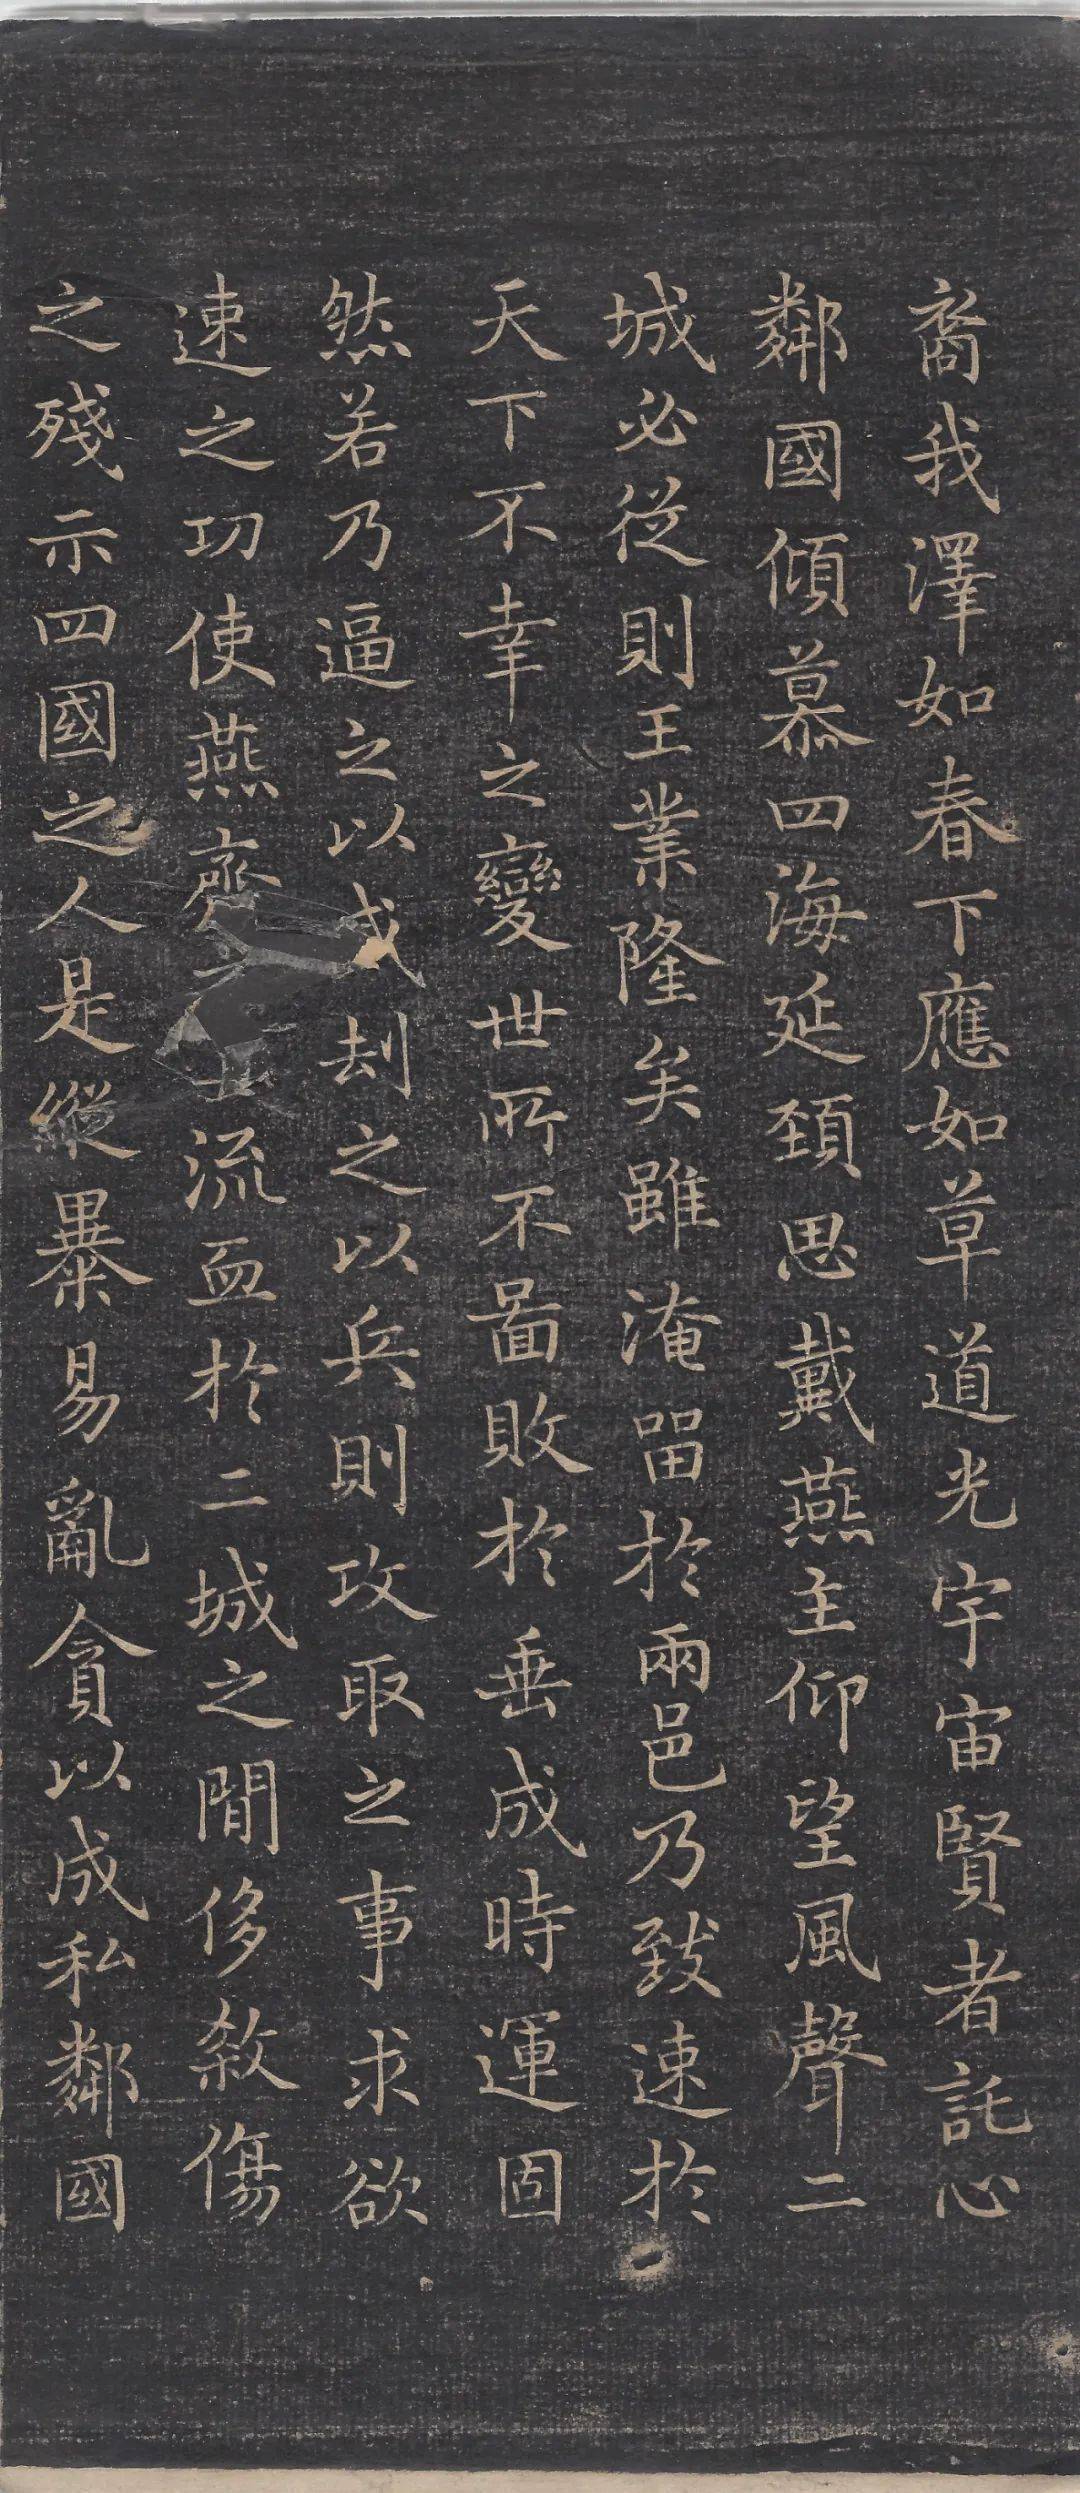 裔我澤如春下應如草道光宇宙賢者託心
鄰國傾慕四海延頸思戴燕主仰望風聲二
城必從則王業隆矣雖淹留於兩邑乃致速於
天下不幸之變世所不啚敗於垂成時運固
然若乃逼之以威刦之以兵則攻取之事求欲
速之功使燕齊士流血於二城之閒侈煞傷
之殘示四國之人是縱暴易亂貪以成私鄰國